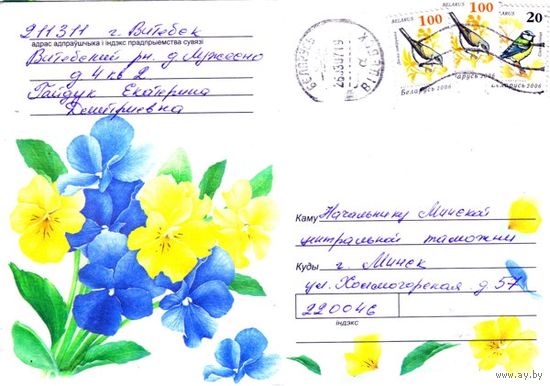 911311 г. Витебск
адрас адпраўшчыка і індэкс прадпрыемства сувязі
Витебский рн. д Мужесно
д 4 кв 2
Гайдук Екатерина
Дмитриевна
BELARUS
100
BELARUS
100
20
Беларусь 2006
Беларусь 2006
Беларусь 2006
БЕЛАРУСЬ
260307 19
ВІЦЕБСК
Каму Начальнику Минской
центральной таможни
Куды г. Минск
ул. Холмогорская д 57
220046
індэкс
www.ay.by